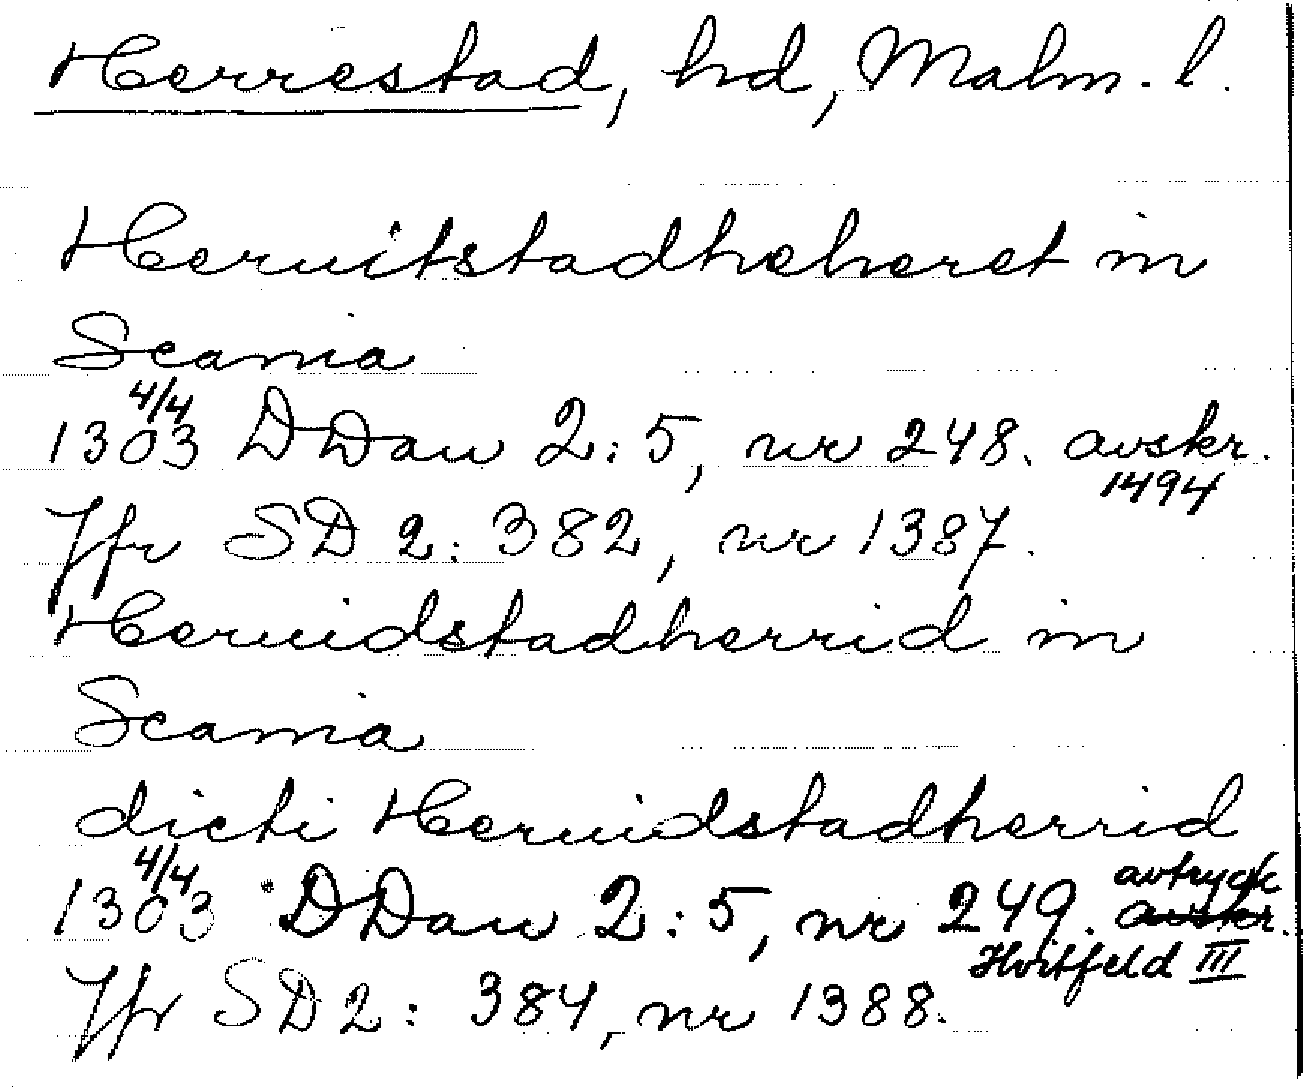 Herrestad, hd, Malm. l.
Heruitstadheheret in
Scania
4/4
1303 DDan 2:5, nr 248. avskr.
1494
Jfr SD 2: 382, nr 1387.
Heruidstadherrid in
Scania
dicti Heruidstadherrid
4/4 avtryck
1303 DDan 2:5, nr 249. avskr.
Hvitfeld III
Jfr SD 2: 384, nr 1388.